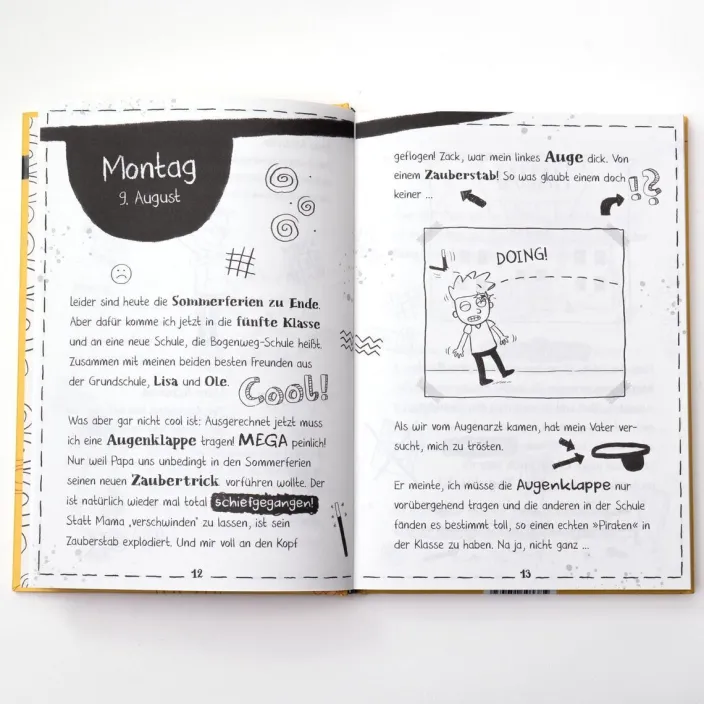 Montag
9. August
Leider sind heute die Sommerferien zu Ende.
Aber dafür komme ich jetzt in die fünfte Klasse
und an eine neue Schule, die Bogenweg-Schule heißt.
Zusammen mit meinen beiden besten Freunden aus
der Grundschule, Lisa und Ole.
Cool!
Was aber gar nicht cool ist: Ausgerechnet jetzt muss
ich eine Augenklappe tragen! MEGA peinlich!
Nur weil Papa uns unbedingt in den Sommerferien
seinen neuen Zaubertrick vorführen wollte. Der
ist natürlich wieder mal total schiefgegangen!
Statt Mama „verschwinden" zu lassen, ist sein
Zauberstab explodiert. Und mir voll an den Kopf
12
geflogen! Zack, war mein linkes Auge dick. Von
einem Zauberstab! So was glaubt einem doch
keiner ...
!?
DOING!
Als wir vom Augenarzt kamen, hat mein Vater ver-
sucht, mich zu trösten.
Er meinte, ich müsse die Augenklappe nur
vorübergehend tragen und die anderen in der Schule
fänden es bestimmt toll, so einen echten »Piraten« in
der Klasse zu haben. Na ja, nicht ganz ...
13